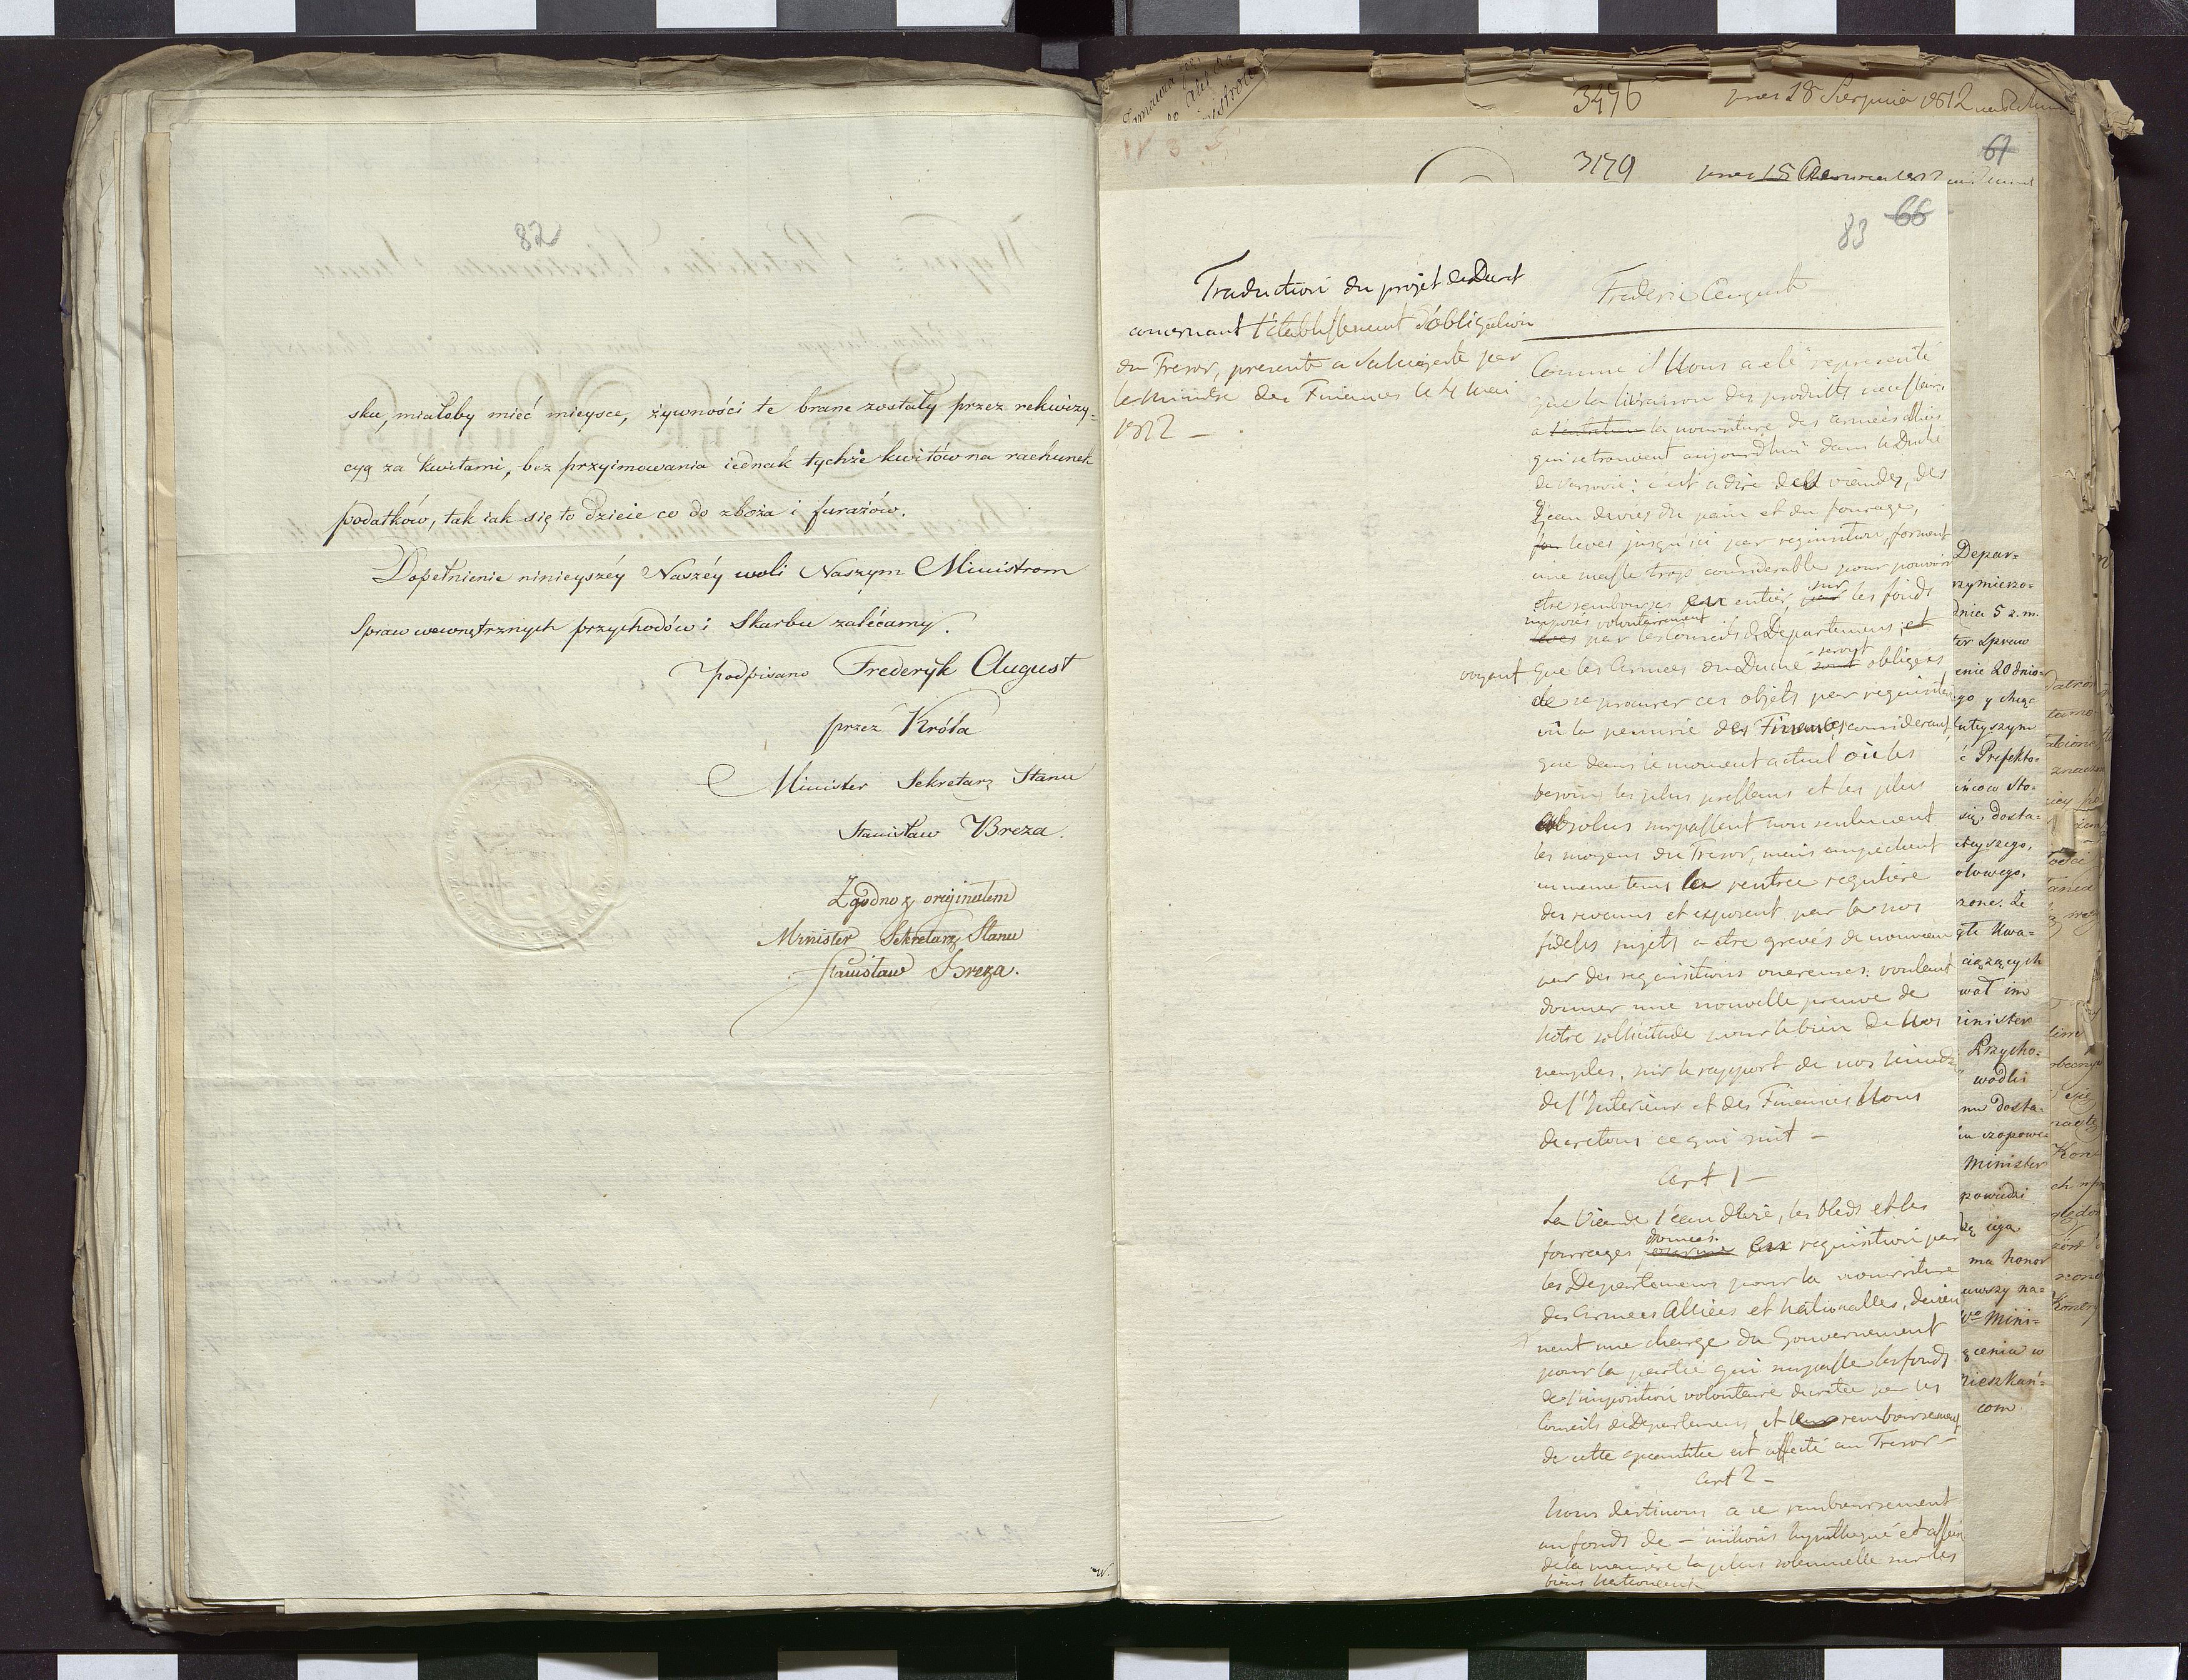 82
sku, miałoby mieć mieysce, żywności te brane zostały przez rekwizy=
cyą za kwitami, bez przyimowania iednak tychże kwitów na rachunek
podatków, tak iak się to dzieie co do zboża i furażów.
Dopełnienie ninieyszéy Naszéy woli Naszym Ministrom
Spraw wewnętrznych przychodów i Skarbu zalécamy.
Podpisano Frederyk August
przez Króla
Minister Sekretarz Stanu
Stanisław Breza.
Zgodno z originałem
Minister Sekretarz Stanu
Stanisław Breza.
3476 18 Sierpnia 1812
3179
67
66
83
Traduction du projet de Decret
concernant l'établissement d'obligation
du Tresor, presenté a Sa Majesté par
le Ministre des Finances le 4 Mai
1812 —
Frederic Auguste
Comme il Nous a été representé
que la livraison des produits necessaires
a l'entretien la nourriture des armées alliées
qui se trouvent aujourd'hui dans le Duché
de Varsovie; c'est a dire des viandes, des
eau de vies du pain et du fourage,
levés jusqu'ici par requisition, forment
une masse trop considerable pour pouvoir
etre remboursés en entier, sur les fonds
imposés volontairement
par les Conseils de Departemens; et
voyant que les Armées du Duché seront obligées
de se procurer ces objets par requisition
vû la penurie des Finances, considerant
que dans le moment actuel où les
besoins les plus pressans et les plus
absolus surpassent non seulement
les moyens du Tresor, mais empechent
en meme tems la rentrée reguliere
des revenus et exposent par la nos
fideles sujets a etre grevés de nouveau
par des requisitions onereuses: voulant
donner une nouvelle preuve de
Notre sollicitude pour le bien de Nos
peuples, sur le rapport de nos Ministres
de l'Interieur et des Finances Nous
decretons ce qui suit —
Art 1 —
La Viande l'eau de vie, les bleds et les
donnés
fourrages, en requisition par
les Departemens pour la nourriture
des Armées Alliées et Nationalles, devien
nent une charge du Gouvernement
pour la partie qui surpasse les fonds
de l'imposition volontaire decretée par les
Conseils de Departemens, et leur remboursement
de cette quantitée est affecté au Tresor —
Art 2 —
Nous destinons a ce remboursement
un fonds de — milions hypothequé et affecté
de la maniere la plus solemnelle sur les
biens Nationaux
Depar=
rzymierzo=
dnia 5 z. m.
ter Spraw
enie 20 dnio=
go y chcąc
uteyszym
ć Prefekto=
ińcow Sto=
się, dosta=
uteyszego,
otowego,
zone. Że
gte Kwa=
ciążących
wał im
inister
Przycho=
wodki
mu dosta=
Minister
powiedzi
cya
ma honor
uwszy na=
Mini=
zenia w
ieszkań=
com